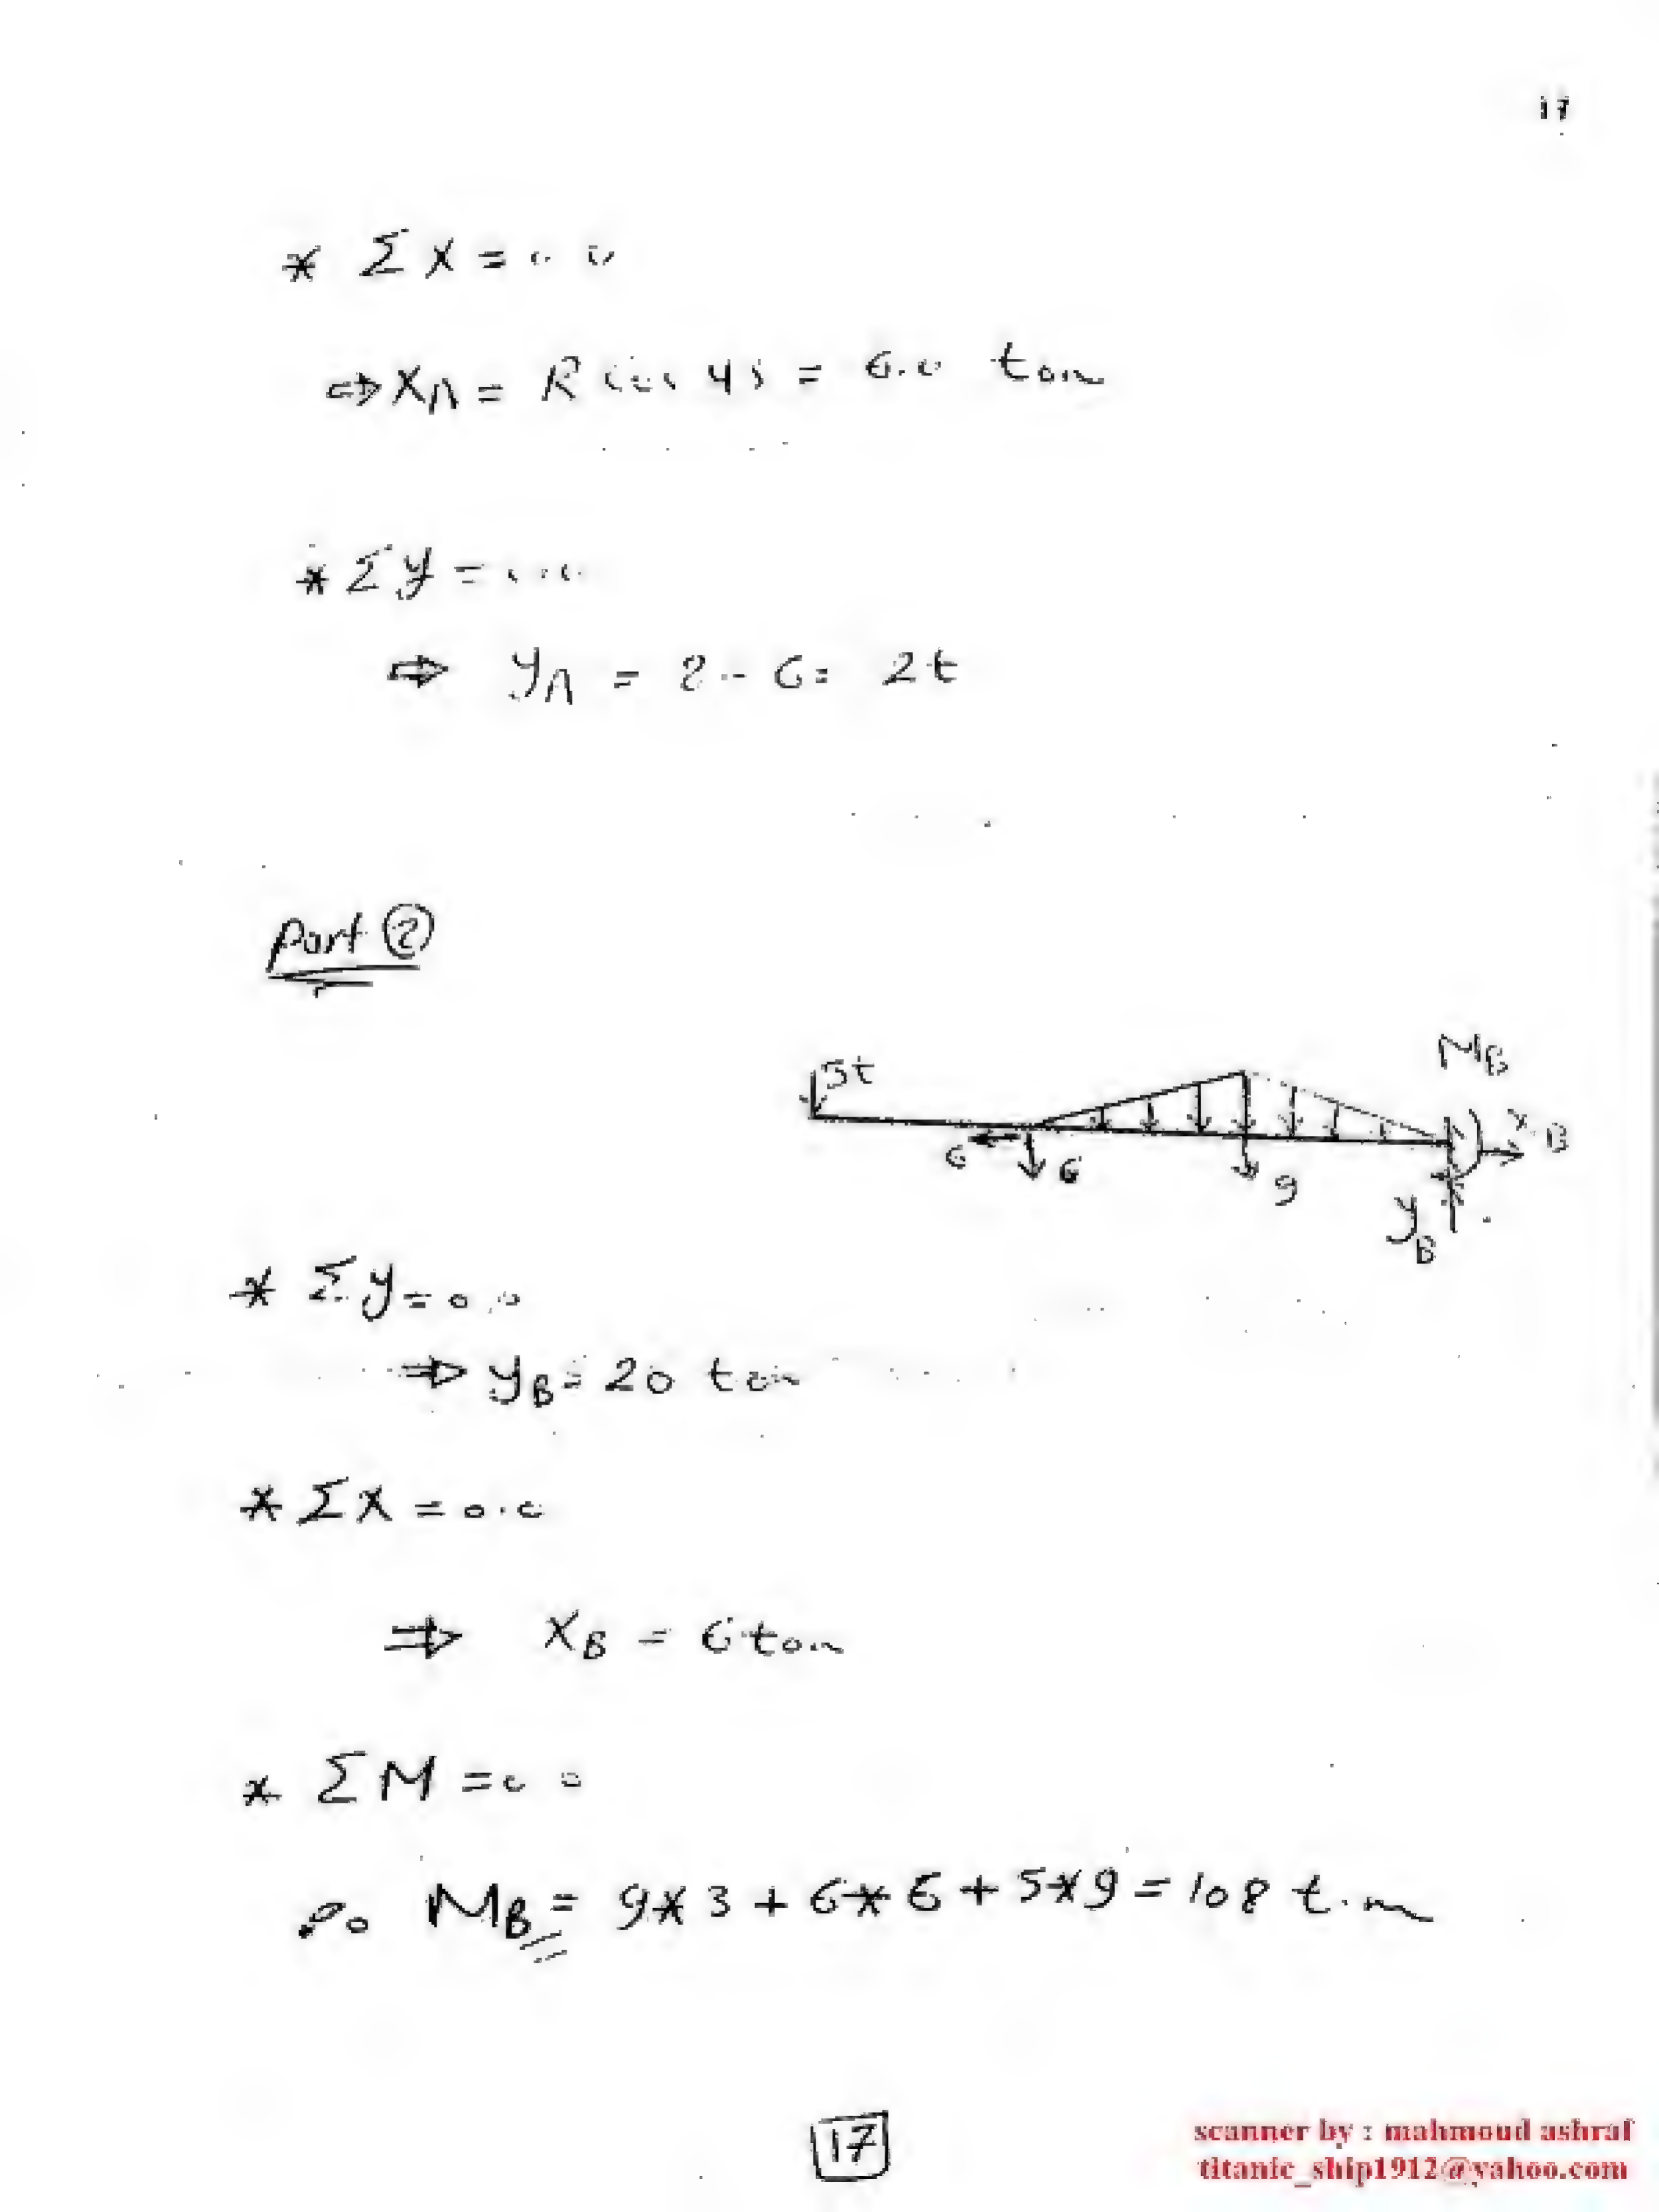 17
* Σ X = 0.0
⇒ XA = R cos 45 = 6.0 ton
* Σ y = 0.0
⇒ yA = 8 - 6 = 2t
Part ②
MB
5t
XB
6
6
9
yB
* Σ y = 0.0
⇒ yB = 20 ton
* Σ X = 0.0
⇒ XB = 6 ton
* Σ M = 0.0
∴ MB = 9*3 + 6*6 + 5*9 = 108 t.m
17
scanner by : mahmoud ashraf
titanic_ship1912@yahoo.com